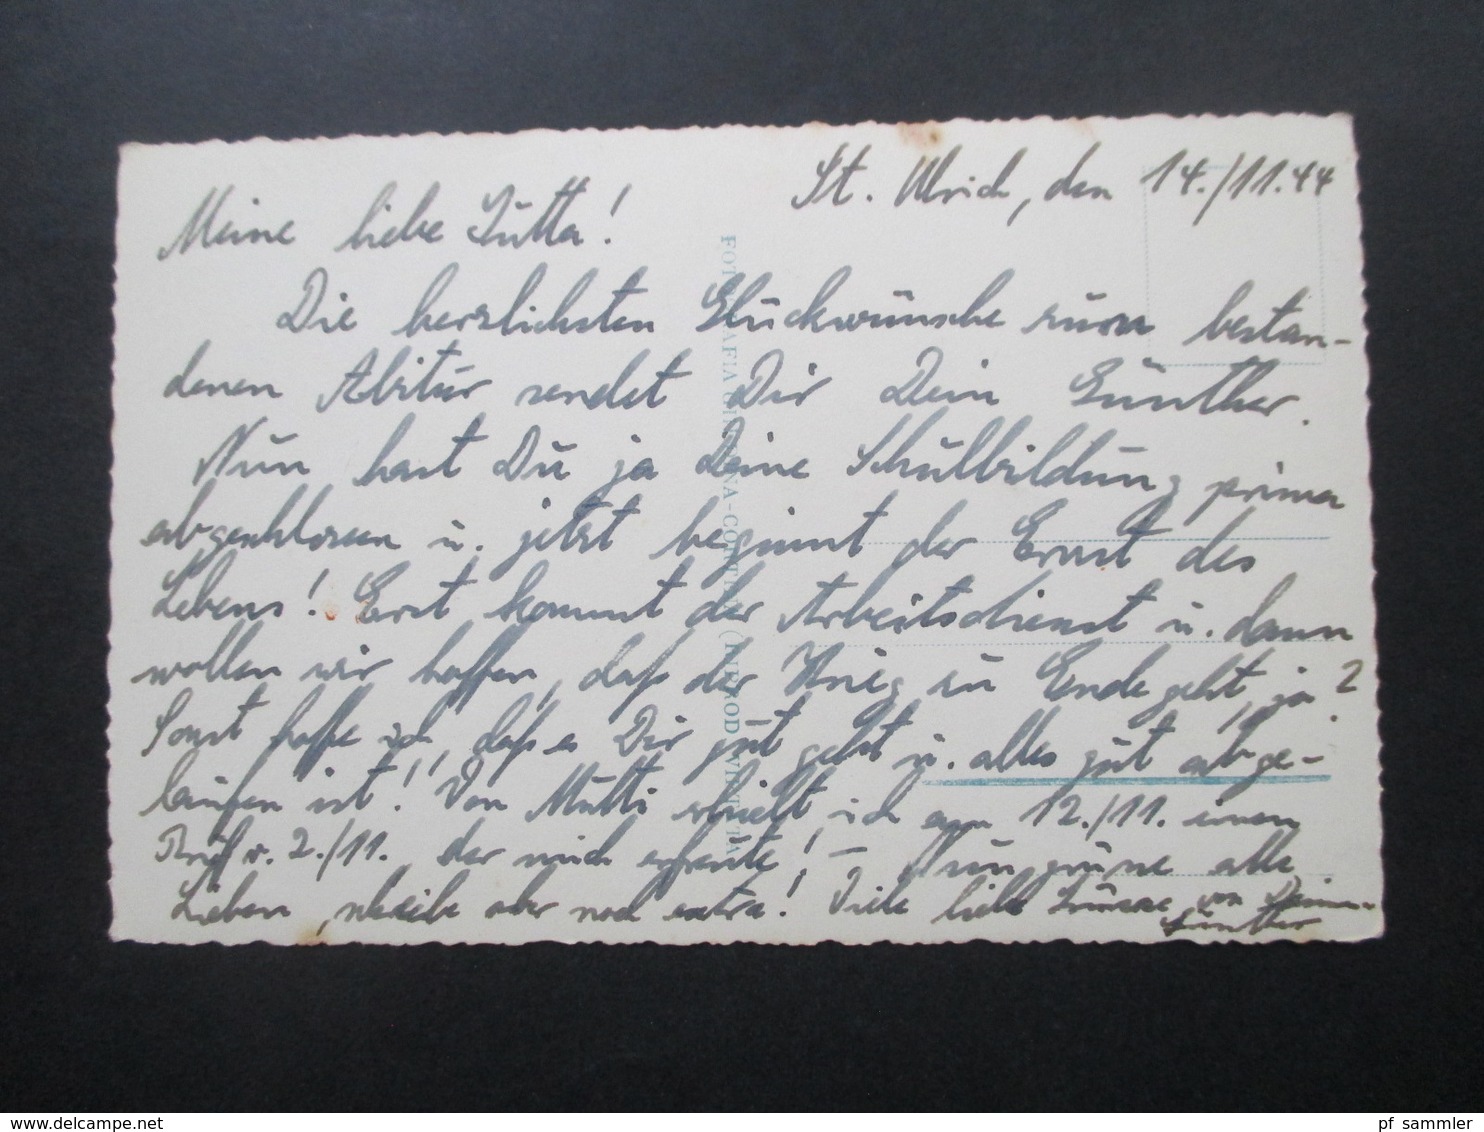 St. Ulrich, den 14./11.44
Meine liebe Jutta!
Die herzlichsten Glückwünsche zum bestan-
denen Abitur sendet Dir Dein Günther.
Nun hast Du ja Deine Schulbildung prima
abgeschlossen u. jetzt beginnt der Ernst des
Lebens! Erst kommt der Arbeitsdienst u. dann
wollen wir hoffen, daß der Krieg zu Ende geht, ja?
Sonst hoffe ich, daß es Dir gut geht u. alles gut abge-
laufen ist! Von Mutti erhielt ich am 12./11. einen
Brief v. 2./11., der mich erfreute! – Nun grüße alle
Lieben, schreibe aber noch extra! Viele liebe Grüsse von Deinem
Günther
FOTO
pf sammler
delcampe.net